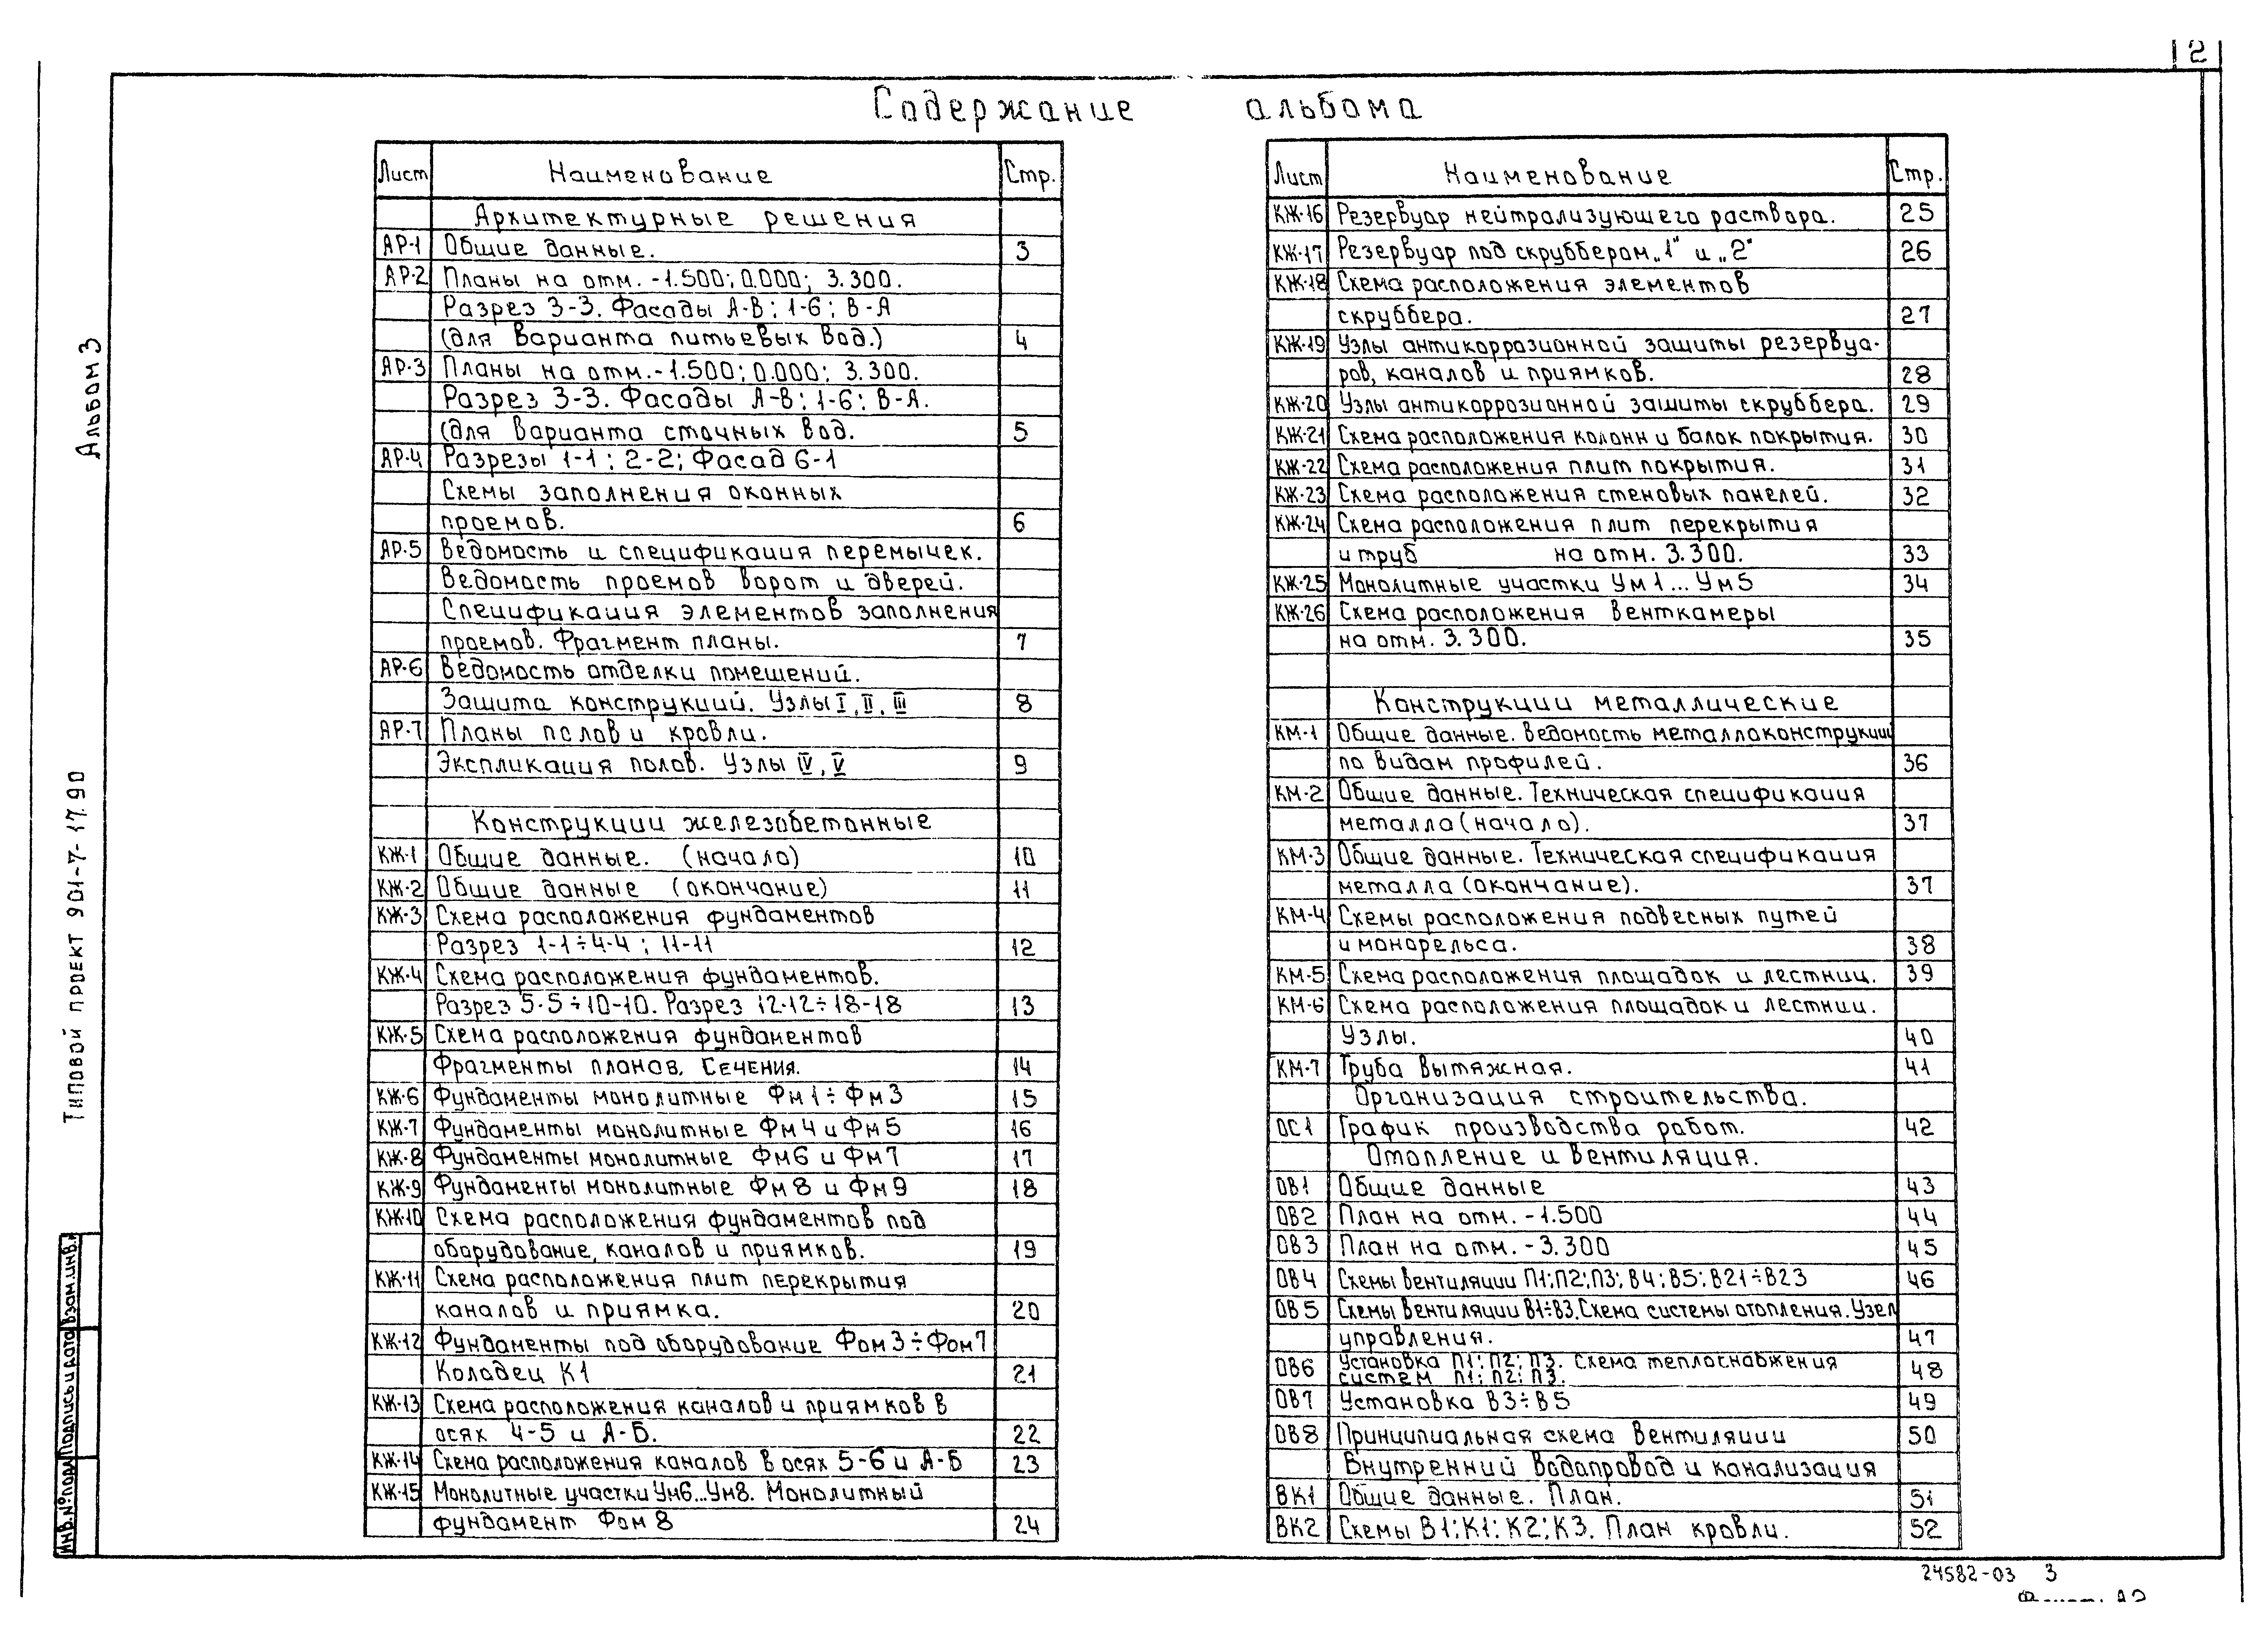 2
Содержание альбома
Альбом 3
Типовой проект 901-7-17.90
Лист Наименование Стр.
Архитектурные решения
АР-1 Общие данные. 3
АР-2 Планы на отм. -1.500; 0.000; 3.300.
Разрез 3-3. Фасады А-В; 1-6; В-А
(для варианта питьевых вод.) 4
АР-3 Планы на отм. -1.500; 0.000; 3.300.
Разрез 3-3. Фасады А-В; 1-6; В-А.
(для варианта сточных вод. 5
АР-4 Разрезы 1-1; 2-2; Фасад 6-1
Схемы заполнения оконных
проемов. 6
АР-5 Ведомость и спецификация перемычек.
Ведомость проемов ворот и дверей.
Спецификация элементов заполнения
проемов. Фрагмент планы. 7
АР-6 Ведомость отделки помещений.
Защита конструкций. Узлы I, II, III 8
АР-7 Планы полов и кровли.
Экспликация полов. Узлы IV, V 9
Конструкции железобетонные
КЖ-1 Общие данные. (начало) 10
КЖ-2 Общие данные (окончание) 11
КЖ-3 Схема расположения фундаментов
Разрез 1-1÷4-4; 11-11 12
КЖ-4 Схема расположения фундаментов.
Разрез 5-5÷10-10. Разрез 12-12÷18-18 13
КЖ-5 Схема расположения фундаментов
Фрагменты планов. Сечения. 14
КЖ-6 Фундаменты монолитные Фм1÷Фм3 15
КЖ-7 Фундаменты монолитные Фм4 и Фм5 16
КЖ-8 Фундаменты монолитные Фм6 и Фм7 17
КЖ-9 Фундаменты монолитные Фм8 и Фм9 18
КЖ-10 Схема расположения фундаментов под
оборудование, каналов и приямков. 19
КЖ-11 Схема расположения плит перекрытия
каналов и приямка. 20
КЖ-12 Фундаменты под оборудование Фом3÷Фом7
Колодец К1 21
КЖ-13 Схема расположения каналов и приямков в
осях 4-5 и А-Б. 22
КЖ-14 Схема расположения каналов в осях 5-6 и А-Б 23
КЖ-15 Монолитные участки Ум6...Ум8. Монолитный
фундамент Фом 8 24
Лист Наименование Стр.
КЖ-16 Резервуар нейтрализующего раствора. 25
КЖ-17 Резервуар под скруббером „1" и „2" 26
КЖ-18 Схема расположения элементов
скруббера. 27
КЖ-19 Узлы антикоррозионной защиты резервуа-
ров, каналов и приямков. 28
КЖ-20 Узлы антикоррозионной защиты скруббера. 29
КЖ-21 Схема расположения колонн и балок покрытия. 30
КЖ-22 Схема расположения плит покрытия. 31
КЖ-23 Схема расположения стеновых панелей. 32
КЖ-24 Схема расположения плит перекрытия
и труб на отм. 3.300. 33
КЖ-25 Монолитные участки Ум1... Ум5 34
КЖ-26 Схема расположения венткамеры
на отм. 3.300. 35
Конструкции металлические
КМ-1 Общие данные. Ведомость металлоконструкции
по видам профилей. 36
КМ-2 Общие данные. Техническая спецификация
металла (начало). 37
КМ-3 Общие данные. Техническая спецификация
металла (окончание). 37
КМ-4 Схемы расположения подвесных путей
и монорельса. 38
КМ-5 Схема расположения площадок и лестниц. 39
КМ-6 Схема расположения площадок и лестниц.
Узлы. 40
КМ-7 Труба вытяжная. 41
Организация строительства.
ОС1 График производства работ. 42
Отопление и вентиляция.
ОВ1 Общие данные 43
ОВ2 План на отм. -1.500 44
ОВ3 План на отм. -3.300 45
ОВ4 Схемы вентиляции П1; П2; П3; В4; В5; В21÷В23 46
ОВ5 Схемы вентиляции В1÷В3. Схема системы отопления. Узел
управления. 47
ОВ6 Установка П1; П2; П3. Схема теплоснабжения
систем П1; П2; П3. 48
ОВ7 Установка В3÷В5 49
ОВ8 Принципиальная схема вентиляции 50
Внутренний водопровод и канализация
ВК1 Общие данные. План. 51
ВК2 Схемы В1; К1; К2; К3. План кровли. 52
Инв.№подл Подпись и дата Взам.инв.
24582-03 3